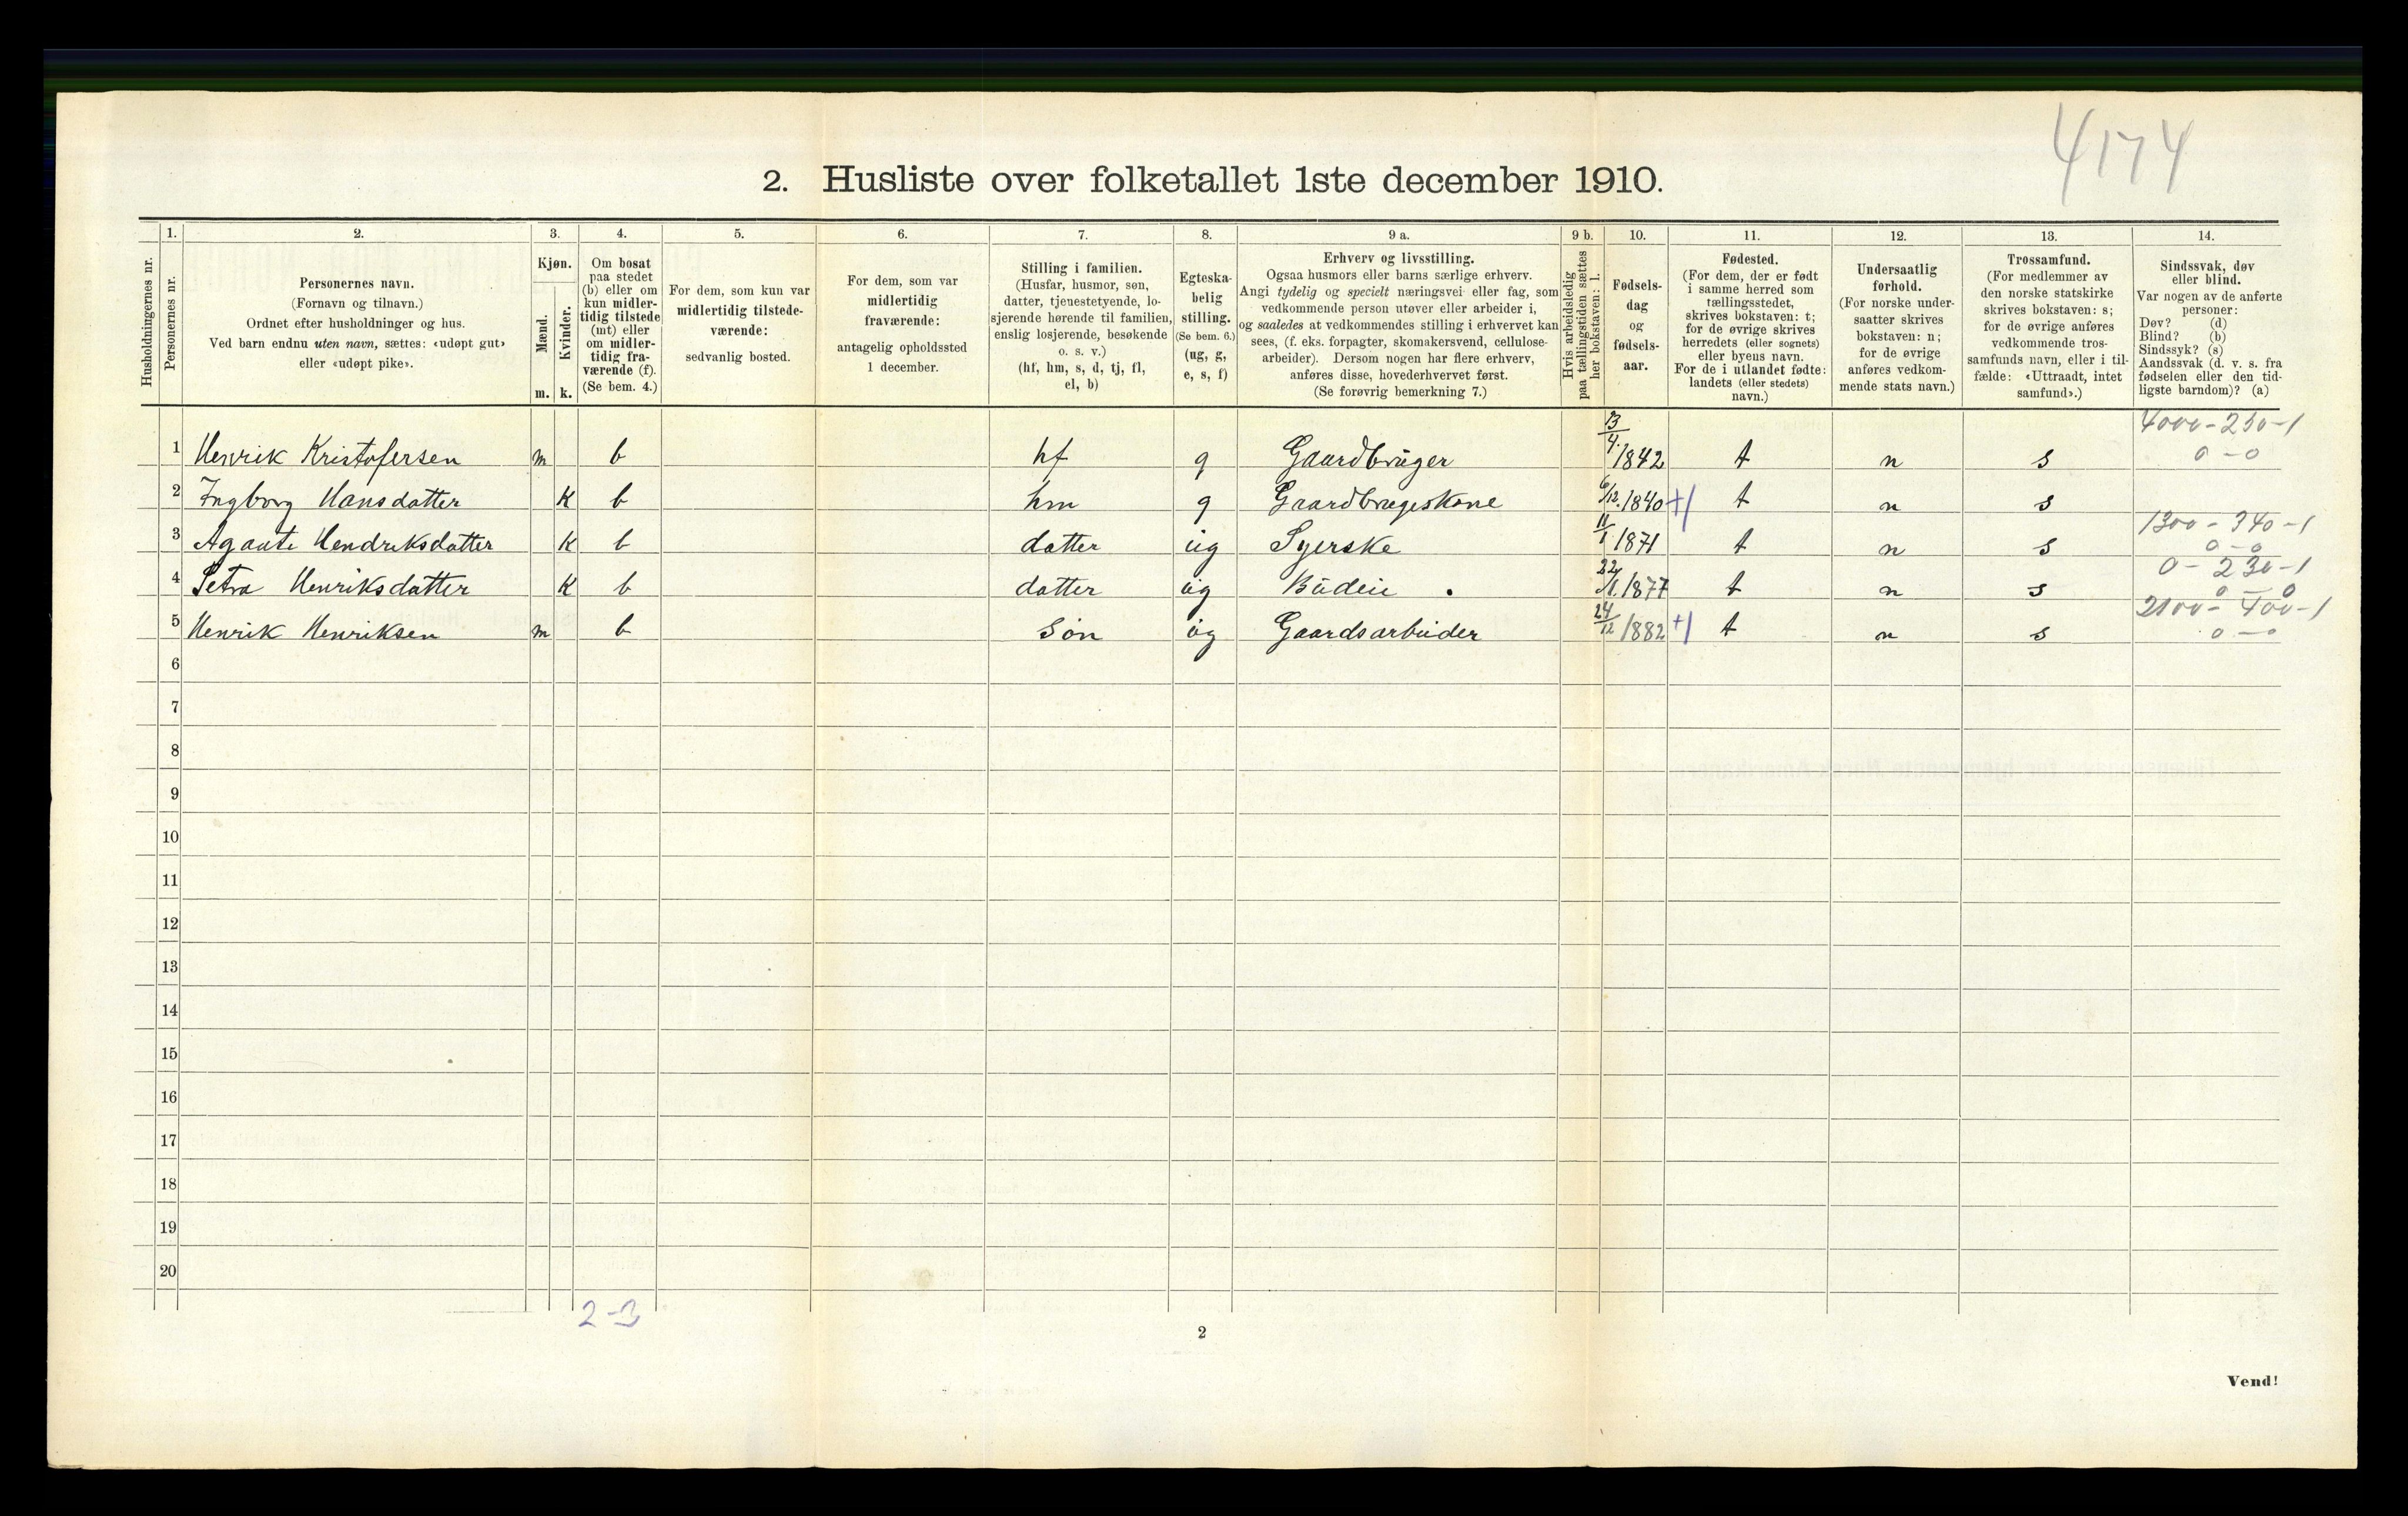 4174
2. Husliste over folketallet 1ste december 1910.
1. 2. 3. 4. 5. 6. 7. 8. 9 a. 9 b. 10. 11. 12. 13. 14.
Husholdningernes nr.
Personernes nr.
Personernes navn.
(Fornavn og tilnavn.)
Ordnet efter husholdninger og hus.
Ved barn endnu uten navn, sættes: «udøpt gut»
eller «udøpt pike».
Kjøn.
Mænd.
Kvinder.
m. k.
Om bosat
paa stedet
(b) eller om
kun midler-
tidig tilstede
(mt) eller
om midler-
tidig fra-
værende (f).
(Se bem. 4.)
For dem, som kun var
midlertidig tilstede-
værende:
sedvanlig bosted.
For dem, som var
midlertidig
fraværende:
antagelig opholdssted
1 december.
Stilling i familien.
(Husfar, husmor, søn,
datter, tjenestetyende, lo-
sjerende hørende til familien,
enslig losjerende, besøkende
o. s. v.)
(hf, hm, s, d, tj, fl,
el, b)
Egteska-
belig
stilling.
(Se bem. 6.)
(ug, g,
e, s, f)
Erhverv og livsstilling.
Ogsaa husmors eller barns særlige erhverv.
Angi tydelig og specielt næringsvei eller fag, som
vedkommende person utøver eller arbeider i,
og saaledes at vedkommendes stilling i erhvervet kan
sees, (f. eks. forpagter, skomakersvend, cellulose-
arbeider). Dersom nogen har flere erhverv,
anføres disse, hovederhvervet først.
(Se forøvrig bemerkning 7.)
Hvis arbeidsledig
paa tællingstiden sættes
her bokstaven: l.
Fødsels-
dag
og
fødsels-
aar.
Fødested.
(For dem, der er født
i samme herred som
tællingsstedet,
skrives bokstaven: t;
for de øvrige skrives
herredets (eller sognets)
eller byens navn.
For de i utlandet fødte:
landets (eller stedets)
navn.)
Undersaatlig
forhold.
(For norske under-
saatter skrives
bokstaven: n;
for de øvrige
anføres vedkom-
mende stats navn.)
Trossamfund.
(For medlemmer av
den norske statskirke
skrives bokstaven: s;
for de øvrige anføres
vedkommende tros-
samfunds navn, eller i til-
fælde: «Uttraadt, intet
samfund».)
Sindssvak, døv
eller blind.
Var nogen av de anførte
personer:
Døv? (d)
Blind? (b)
Sindssyk? (s)
Aandssvak (d. v. s. fra
fødselen eller den tid-
ligste barndom)? (a)
1 Henrik Kristofersen m b hf g Gaardbruger 13/4 1842 t n s 4000-250-1 0-0
2 Ingborg Hansdatter K b hm g Gaardbrugeskone 6/12 1840 t n s
3 Agaute Hendriksdatter K b datter ug Syerske 11/1 1871 t n s 1300-340-1 0-0
4 Petra Henriksdatter K b datter ug Budeie 22/1 1877 t n s 0-230-1 0-0
5 Henrik Henriksen m b Søn ug Gaardsarbeider 24/12 1882 t n s 2100-400-1 0-0
6
7
8
9
10
11
12
13
14
15
16
17
18
19
20
2-3
2
Vend!